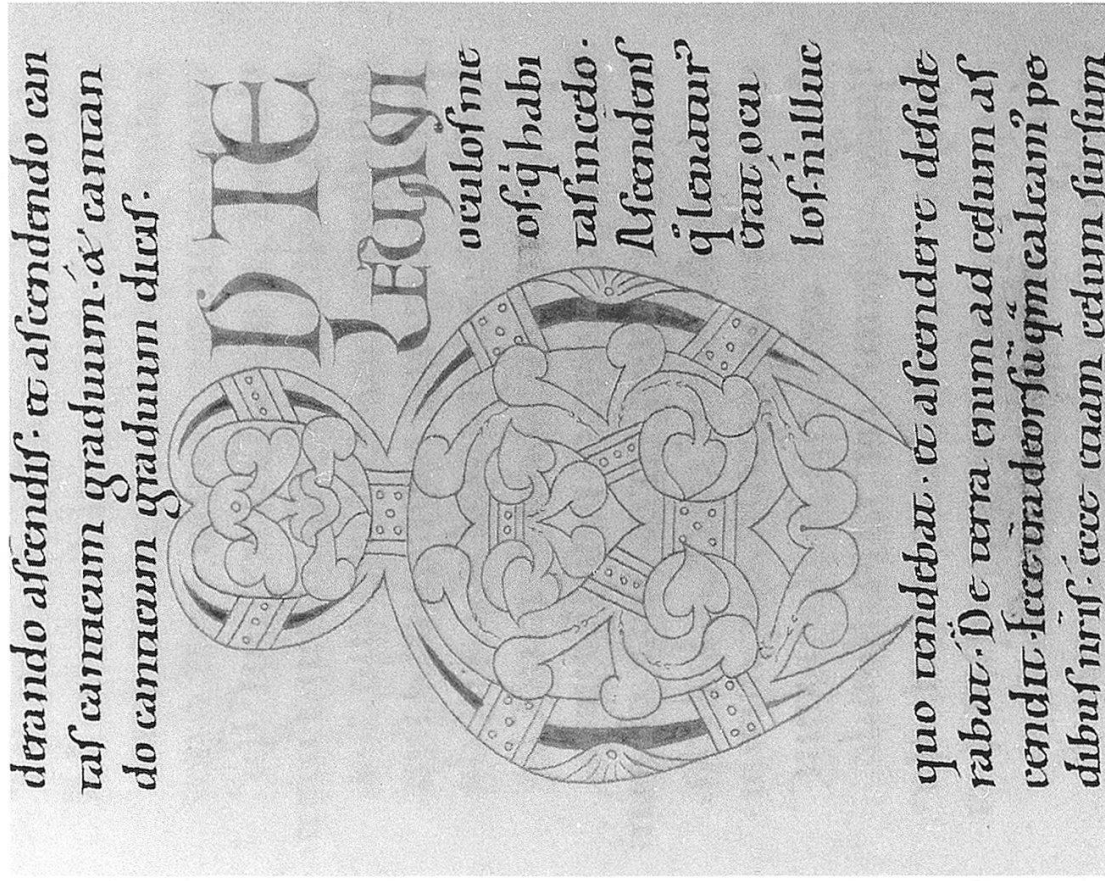 derando ascendis. et ascendendo can
tas canticum graduum. a' cantan
do canticum graduum ducis.
AD TE
LEVAVI
oculos me
os. q habi
tas in celo.
Ascendens
q levatur'
erat ocu
los. n illuc
quo tendebat. et ascendere deside
rabat. De terra enim ad celum as
cendit. Ecce deorsu qm calcam' pe
dibus nris. ecce etiam celum sursum